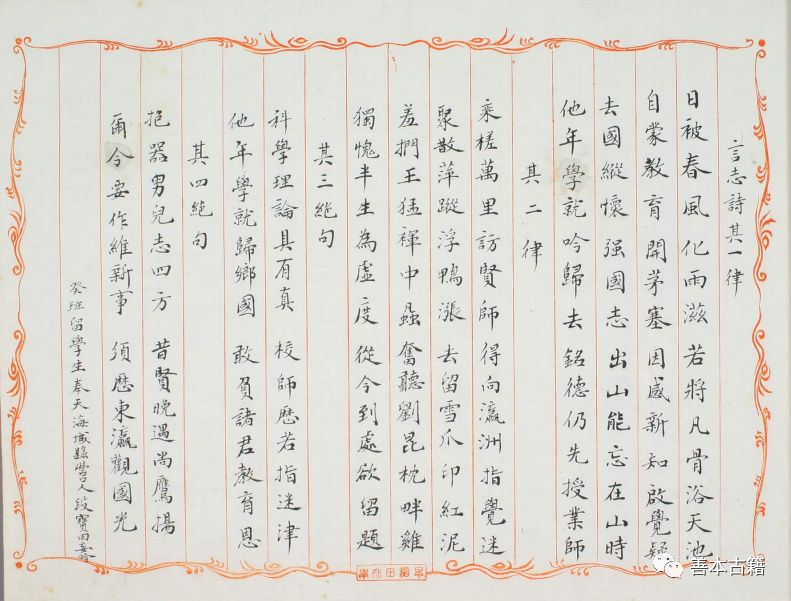 言志詩其一律
日被春風化雨滋 若將凡骨浴天池
自蒙教育開茅塞 因感新知啟覺疑
去國縱懷强國志 出山能忘在山時
他年學就吟歸去 銘德仍先授業師
其二律
乘槎萬里訪賢師 得向瀛洲指覺迷
聚散萍蹤浮鴨漲 去留雪爪印紅泥
羞捫王猛褌中蝨 奮聽劉昆枕畔雞
獨愧半生為虛度 從今到處欲留題
其三絕句
科學理論具有真 校師歷若指迷津
他年學就歸鄉國 敢負諸君教育恩
其四絕句
抱器男兒志四方 昔賢晚遇尚鷹揚
爾今要作維新事 須歷東瀛觀國光
癸班留學生奉天海城縣營人段寶田妄吟
善本古籍